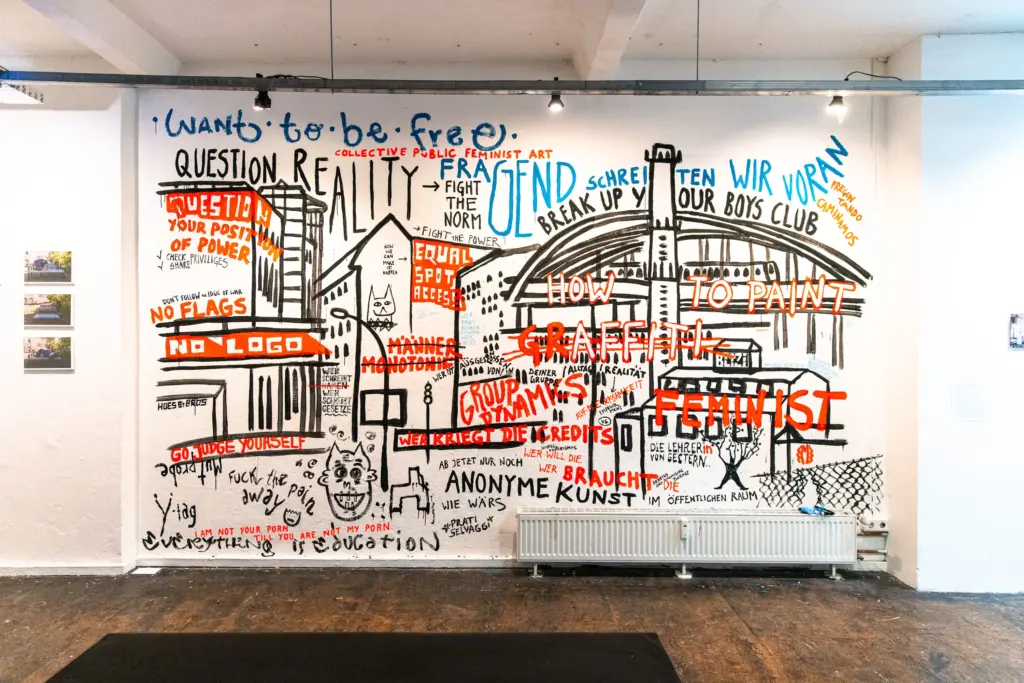 i WANT·to·be·free·
COLLECTIVE PUBLIC FEMINIST ART
QUESTION REALITY
→ FIGHT
THE
NORM
→ FIGHT THE POWER!
FRAGEND SCHREITEN WIR VORAN
PREGUNTANDO
CAMINAMOS
BREAK UP YOUR BOYS CLUB
QUESTION
YOUR POSITION
OF POWER
CHECK PRIVILEGES
SHARE!
NOW
WE
CAN
MAKE
IT
HAPPEN
EQUAL
SPOT
ACCESS
DON'T FOLLOW AN IDOL OF WAR
NO FLAGS
NO LOGO
HOW TO PAINT
GRAFFITI
FEMINIST
MÄNNER
MONOTONIE
WER
SCHREIBT
HABEN
WER
SCHREIBT
GESETZE
WER IST AUSGESCHLOSSEN
VON/IN
DEINER
GRUPPE
ALLTAG/REALITÄT
GROUP
DYNAMICS
AUFMERKSAMKEIT
HOES BY BROS
GO JUDGE YOURSELF
WER KRIEGT DIE CREDITS
WER WILL DIE
WER BRAUCHT DIE
DIE LEHRERIN
VON GESTERN..
Mut probe
Fuck the pain
away
AB JETZT NUR NOCH
ANONYME KUNST
IM ÖFFENTLICHEN RAUM
WIE WÄRS
*PRATI
SELVAGGI*
Y-tag
I AM NOT YOUR PORN
TILL YOU ARE NOT MY PORN
EVERYTHING is EDUCATION